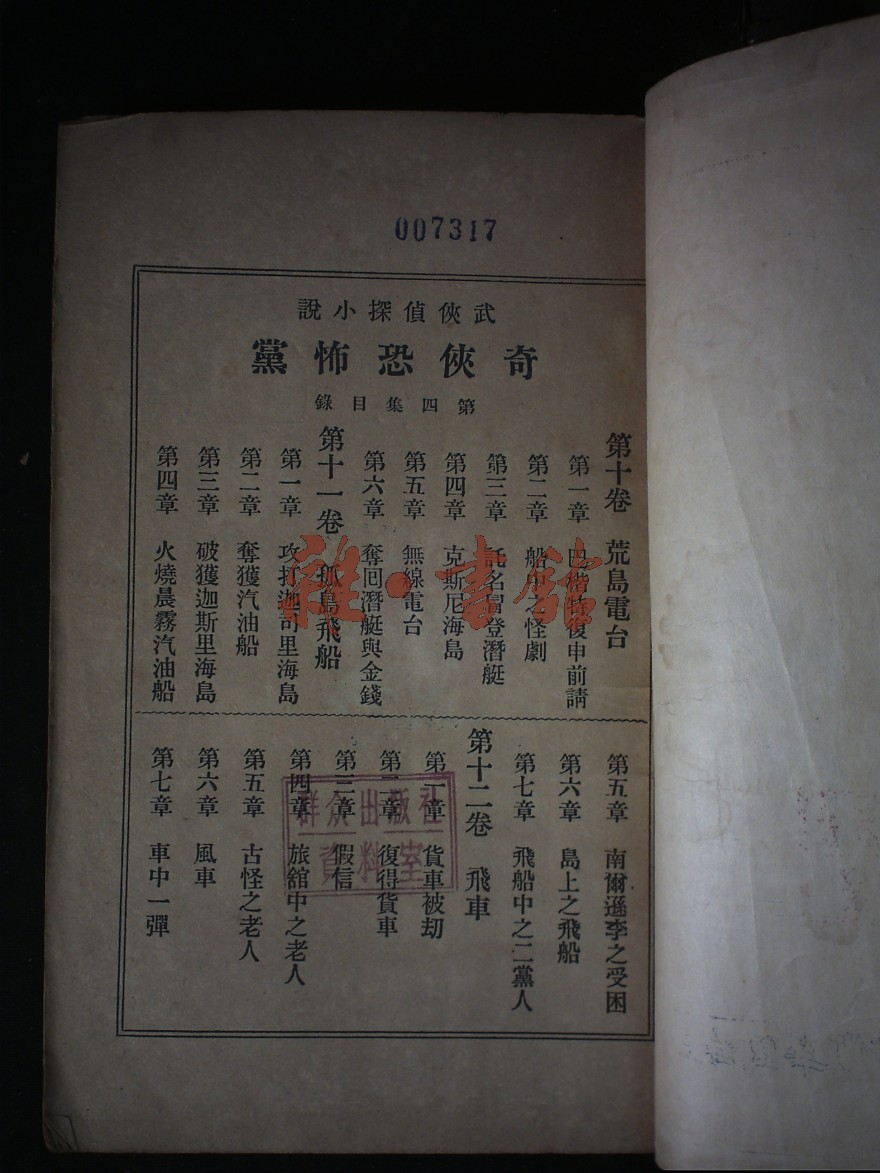 007317
武俠偵探小說
奇俠恐怖黨
第四集目錄
第十卷 荒島電台
第一章 巴楷特復申前請
第二章 船中之怪劇
第三章 託名冒登潛艇
第四章 克斯尼海島
第五章 無線電台
第六章 奪回潛艇與金錢
第十一卷 孤島飛船
第一章 攻打迦奇里海島
第二章 奪獲汽油船
第三章 破獲迦斯里海島
第四章 火燒晨霧汽油船
第五章 南爾遜李之受困
第六章 島上之飛船
第七章 飛船中之二黨人
第十二卷 飛車
第一章 貨車被刧
第二章 復得貨車
第三章 假信
第四章 旅舘中之老人
第五章 古怪之老人
第六章 風車
第七章 車中一彈
雜·書館
群众出版社
資料室